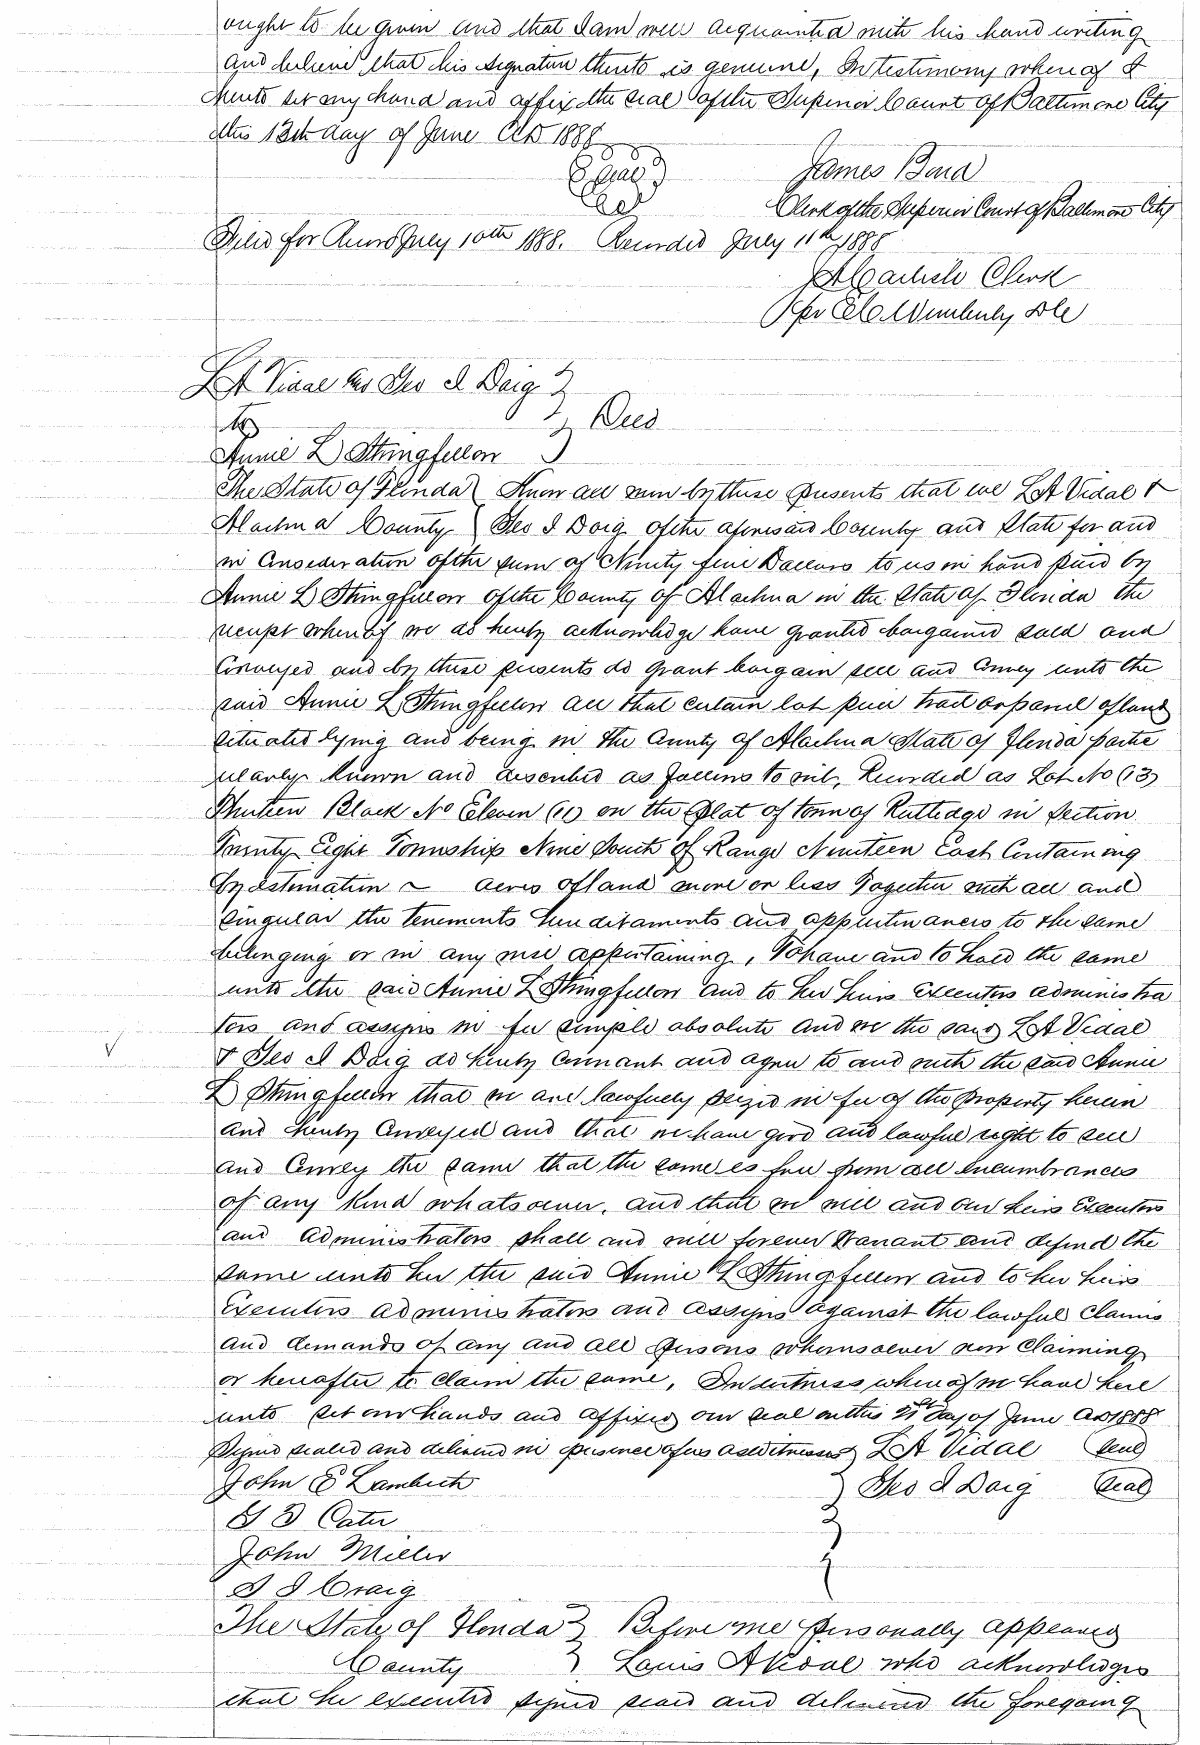 ought to be given and that I am well acquainted with his hand writing
and believe that his signature thereto is genuine, In testimony whereof I
hereto set my hand and affix the seal of the Superior Court of Baltimore City
this 13th day of June AD 1888
Seal James Bond
Clerk of the Superior Court of Baltimore City
Filed for Record July 10th 1888. Recorded July 11th 1888
Carlisle Clerk
Per Wimberly DC
L A Vidal & Geo I Doig
to Deed
Annie L Stringfellow
The State of Florida Know all men by these presents that we L A Vidal &
Alachua County Geo I Doig of the aforesaid County and State for and
in Consideration of the sum of Ninety five Dollars to us in hand paid by
Annie L Stringfellow of the County of Alachua in the State of Florida the
receipt whereof we do hereby acknowledge have granted bargained sold and
Conveyed and by these presents do grant bargain sell and Convey unto the
said Annie L Stringfellow all that certain lot piece tract or parcel of land
situated lying and being in the County of Alachua State of Florida partic
ularly known and described as follows to wit, Recorded as Lot No (13)
Thirteen Block No Eleven (11) on the Plat of town of Rutledge in Section
Twenty Eight Township Nine South of Range Nineteen East Containing
by estimation ~ acres of land more or less Together with all and
singular the tenements hereditaments and appurtenances to the same
belonging or in any wise appertaining, To have and to hold the same
unto the said Annie L Stringfellow and to her heirs Executors administra
tors and assigns in fee simple absolute and we the said L A Vidal
& Geo I Doig do hereby Covenant and agree to and with the said Annie
L Stringfellow that we are lawfully seized in fee of the property herein
and hereby Conveyed and that we have good and lawful right to sell
and Convey the same that the same is free from all encumbrances
of any kind whatsoever, and that we will and our heirs Executors
and administrators shall and will forever Warrant and defend the
same unto her the said Annie L Stringfellow and to her heirs
Executors administrators and assigns against the lawful Claims
and demands of any and all persons whomsoever now Claiming
or hereafter to claim the same, In witness whereof we have here
unto set our hands and affixed our seal on this 21st day of June AD 1888
Signed sealed and delivered in presence of us as witnesses L A Vidal Seal
John E Lambeth Geo I Doig Seal
Cater
John Miller
Craig
The State of Florida Before me personally appeared
County Louis A Vidal who acknowledges
that he executed signed seald and delivered the foregoing